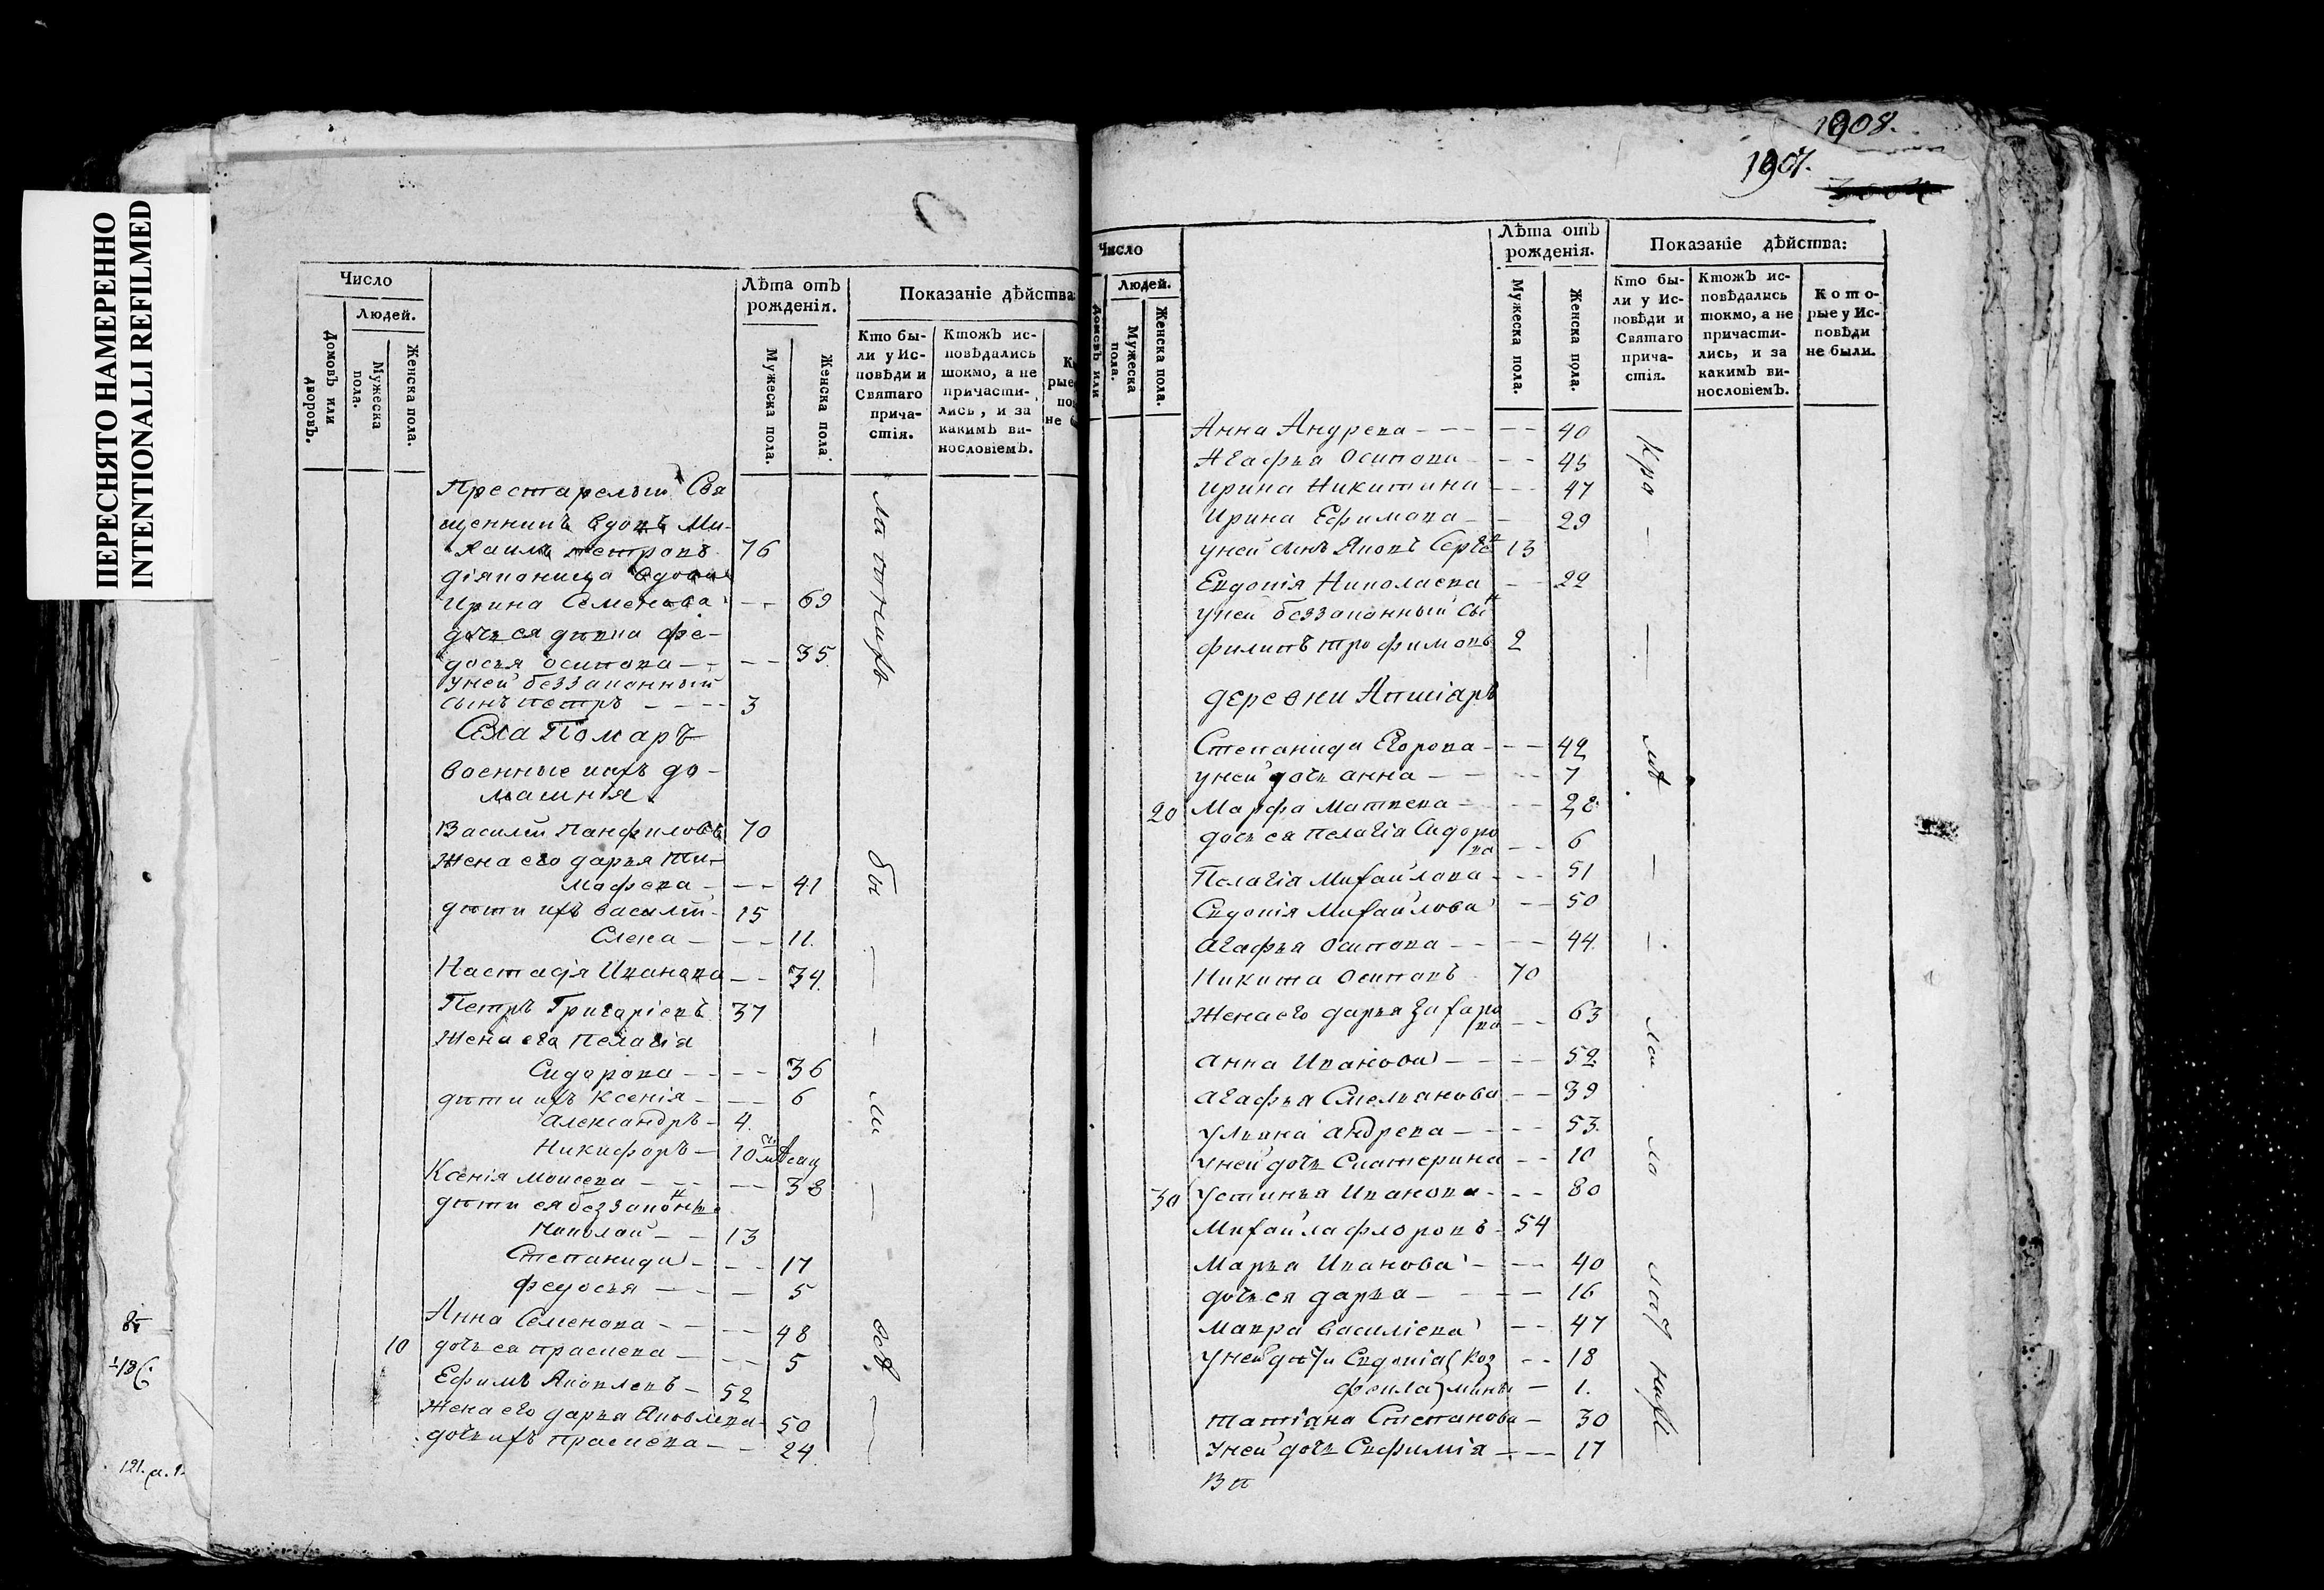 ПЕРЕСНЯТО НАМЕРЕННО
INTENTIONALLI REFILMED
Число
Людей.
Домовъ или дворовъ.
Мужеска пола.
Женска пола.
Лѣта отъ рожденія.
Мужеска пола.
Женска пола.
Показаніе дѣйства
Кто были у Исповѣди и Святаго причастія.
Ктожъ исповѣдались токмо, а не причастились, и за какимъ винословіемъ.
Престарелый Свя
щенникъ вдовъ Ми-
хаилъ петровъ 76
діяконица вдова
Ирина Семенова - - 69
дочь ея девка фе-
досья осипова - - - 35
у ней беззаконный
сынъ петръ - - - - 3
Села Помаръ
военные и ихъ до-
машнія
Василій Панфиловъ 70
Жена его дарья Ти-
мофева - - - 41
дети ихъ василій - 15
Елена - - - 11.
Настасія Иванова - - 34.
Петръ Григоріевъ 37
Жена его Пелагія
Сидорова - - - - 36
дети ихъ Ксенія - - - 6
Александръ - 4.
Никифоръ - 10 месяц
Ксенія моисеева - - - - - 38
дети ея беззаконные
Николай - - 13
Степанида - - - 17
федосья - - - 5
Анна Семенова - - - - 48
10 дочь ея прасковья - - - 5
Ефимъ Яковлевъ - 52
Жена его дарья Яковлева - 50
дочь ихъ прасковья - - 24.
бы
ли
85
121.
1908.
1907.
Число
Людей.
Домовъ или
Мужеска пола.
Женска пола.
Лѣта отъ рожденія.
Мужеска пола.
Женска пола.
Показаніе дѣйства:
Кто были у Исповѣди и Святаго причастія.
Ктожъ исповѣдались токмо, а не причастились, и за какимъ винословіемъ.
Которые у Исповѣди не были.
Анна Андрева - - - - - 40
Агафья Осипова - - 45
Ирина Никитина - - - 47
Ирина Ефимова - - 29
у ней сынъ Яковъ Серге 13
Евдокія Николаева - - 29
у ней беззаконный сын
филипъ трофимовъ 2
деревни Апшіаръ
Степанида Егорова - - - 42
у ней дочь анна - - - - 7
20 Марфа Матвева - - - 28
дочь ея Пелагія Сидоро
ва - - 6
Пелагія Михайлова - - - 51
Евдокія Михайлова - - 50
Агафья осипова - - - - 44.
Никита осиповъ 70
Жена его дарья Захаро
ва - - 63
Анна Иванова - - - - 52
Агафья Емельянова - - 39
Ульяна андрева - - - - 53.
у ней дочь Екатерина - - 10
30 Устинья Иванова - - - 80
Михайла флоровъ - 54
Марья Иванова - - - 40
дочь ея дарья - - - - 16
Мавра василіева - - 47
у ней дети Евдокія - - 18
фекла - 1.
татіана Степанова - 30
у ней дочь Евфимія - - - 17
Вп